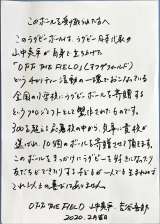 このボールを受け取られた方へ
このラグビーボールは、ラグビー日本代表の
山中亮平が自身で立ち上げた
「OFF THE FIELD」(オフザフィールド)
というチャリティー活動の一環でおこなっている
全国の小学校にラグビーボールを寄贈する
というプロジェクトとして製作されたものです。
300を超える応募の中から、見事に貴校が
選ばれ、10個のボールを寄贈させて頂きます。
このボールをきっかけにラグビーを好きになり
たちができる子どもが一人でも生まれれば
これ以上の喜びはありません。
OFF THE FIELD 山中亮平
2020.2月吉日